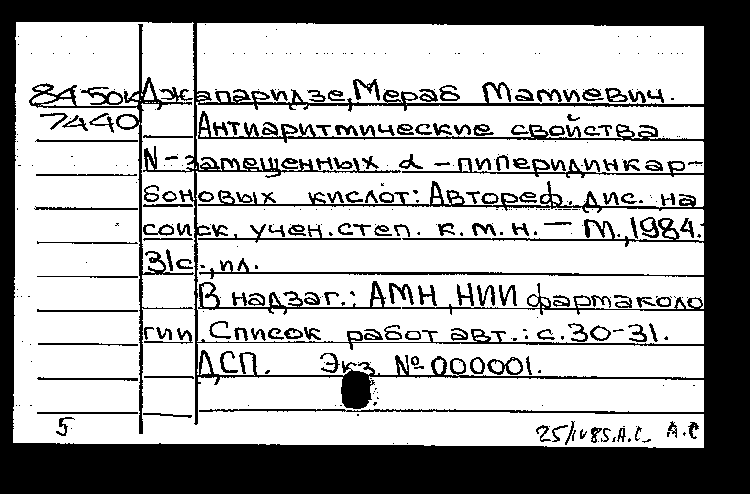 84-50к Джапаридзе, Мераб Мамиевич.
7440 Антиаритмические свойства
N-замещенных α-пиперидинкар-
боновых кислот: Автореф. дис. на
соиск. учен. степ. к.м.н. — М., 1984.
31с., ил.
В надзаг.: АМН, НИИ фармаколо
гии. Список работ авт.: с. 30-31.
ДСП. Экз. № 000001.
5 25/IV85. А.С. А.С